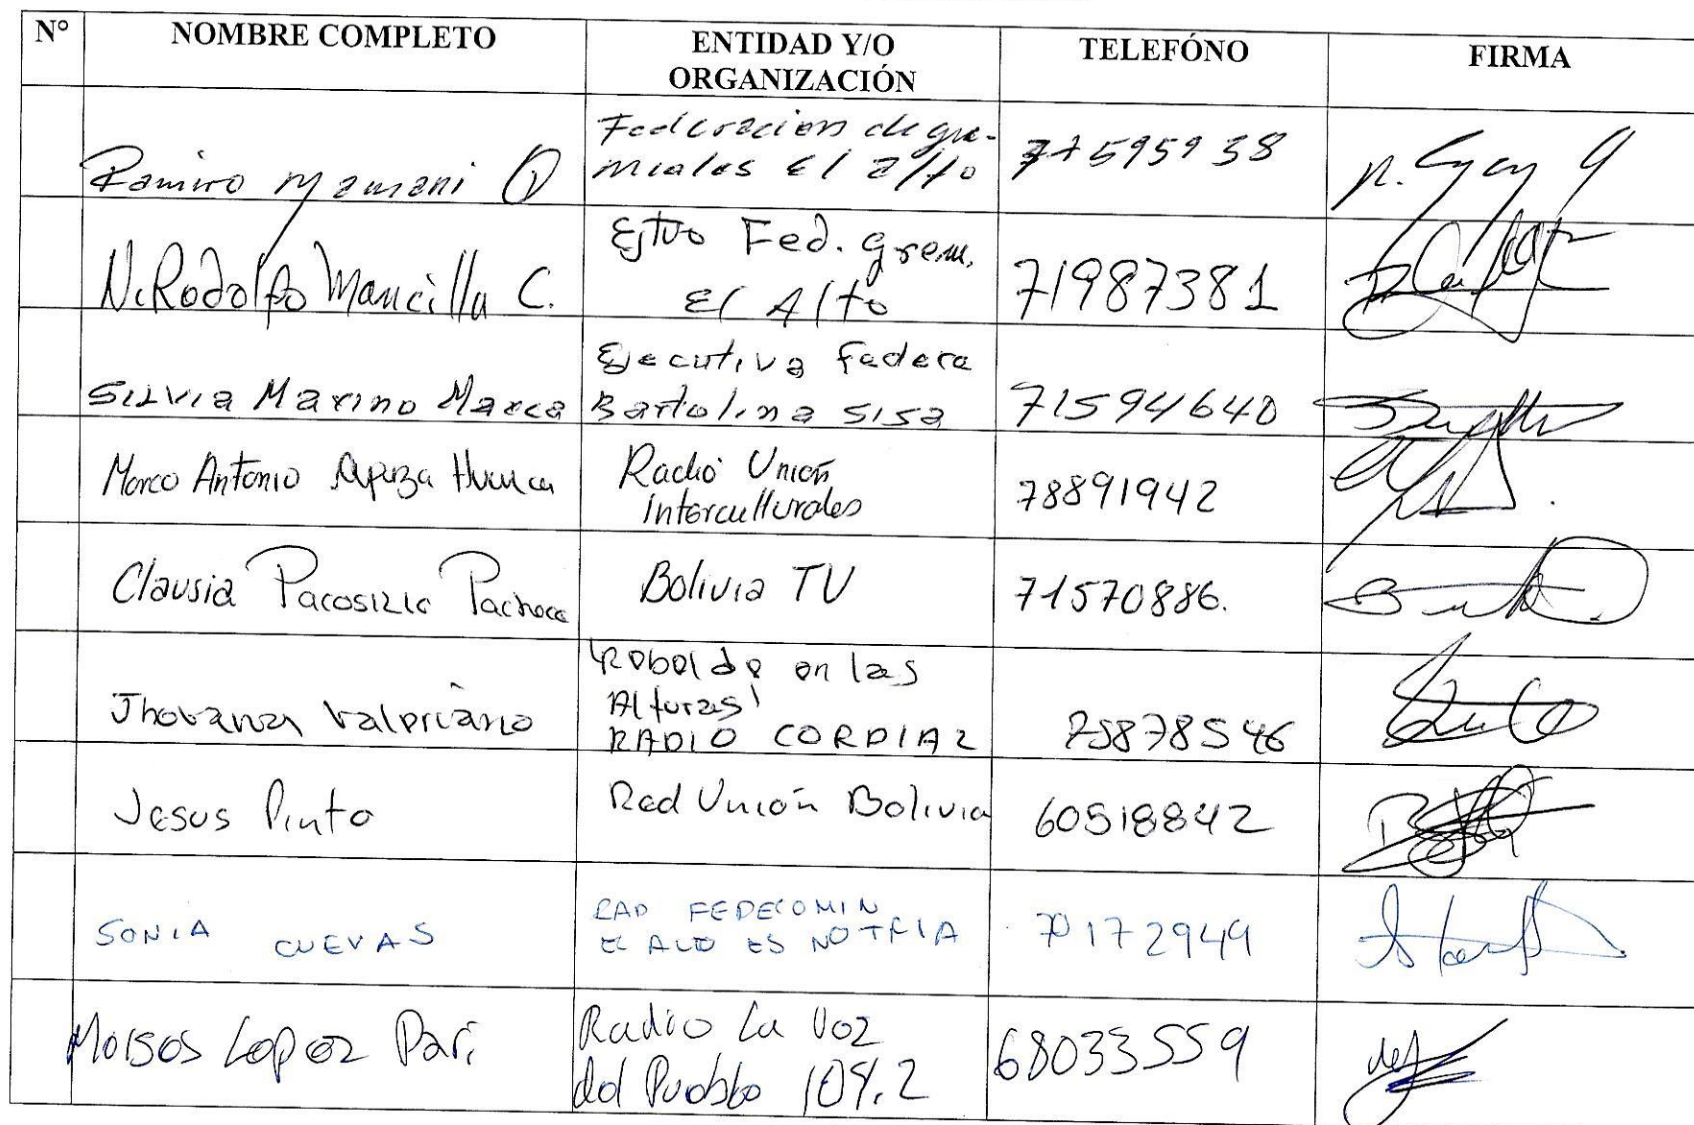 N° NOMBRE COMPLETO ENTIDAD Y/O ORGANIZACIÓN TELEFÓNO FIRMA
Ramiro Mamani Q Federacion de gre-
miales El Alto 77595938
N. Rodolfo Mancilla C. Ejtvo Fed. Grem.
El Alto 71987381
Silvia Marino Marca Ejecutiva Federa
Bartolina Sisa 71594640
Marco Antonio Apaza Huanca Radio Unión
Interculturales 78891942
Clausia Pacosillo Pacheco Bolivia TV 71570886.
Jhovana Valeriano Rebelde en las
Alturas
RADIO CORDIAL 78878546
Jesus Pinto Red Unión Bolivia 60518842
SONIA CUEVAS RAD FEDECOMIN
EL ALTO ES NOTICIA 70172949
Moises Lopez Pari Radio La Voz
del Pueblo 104.2 68033559